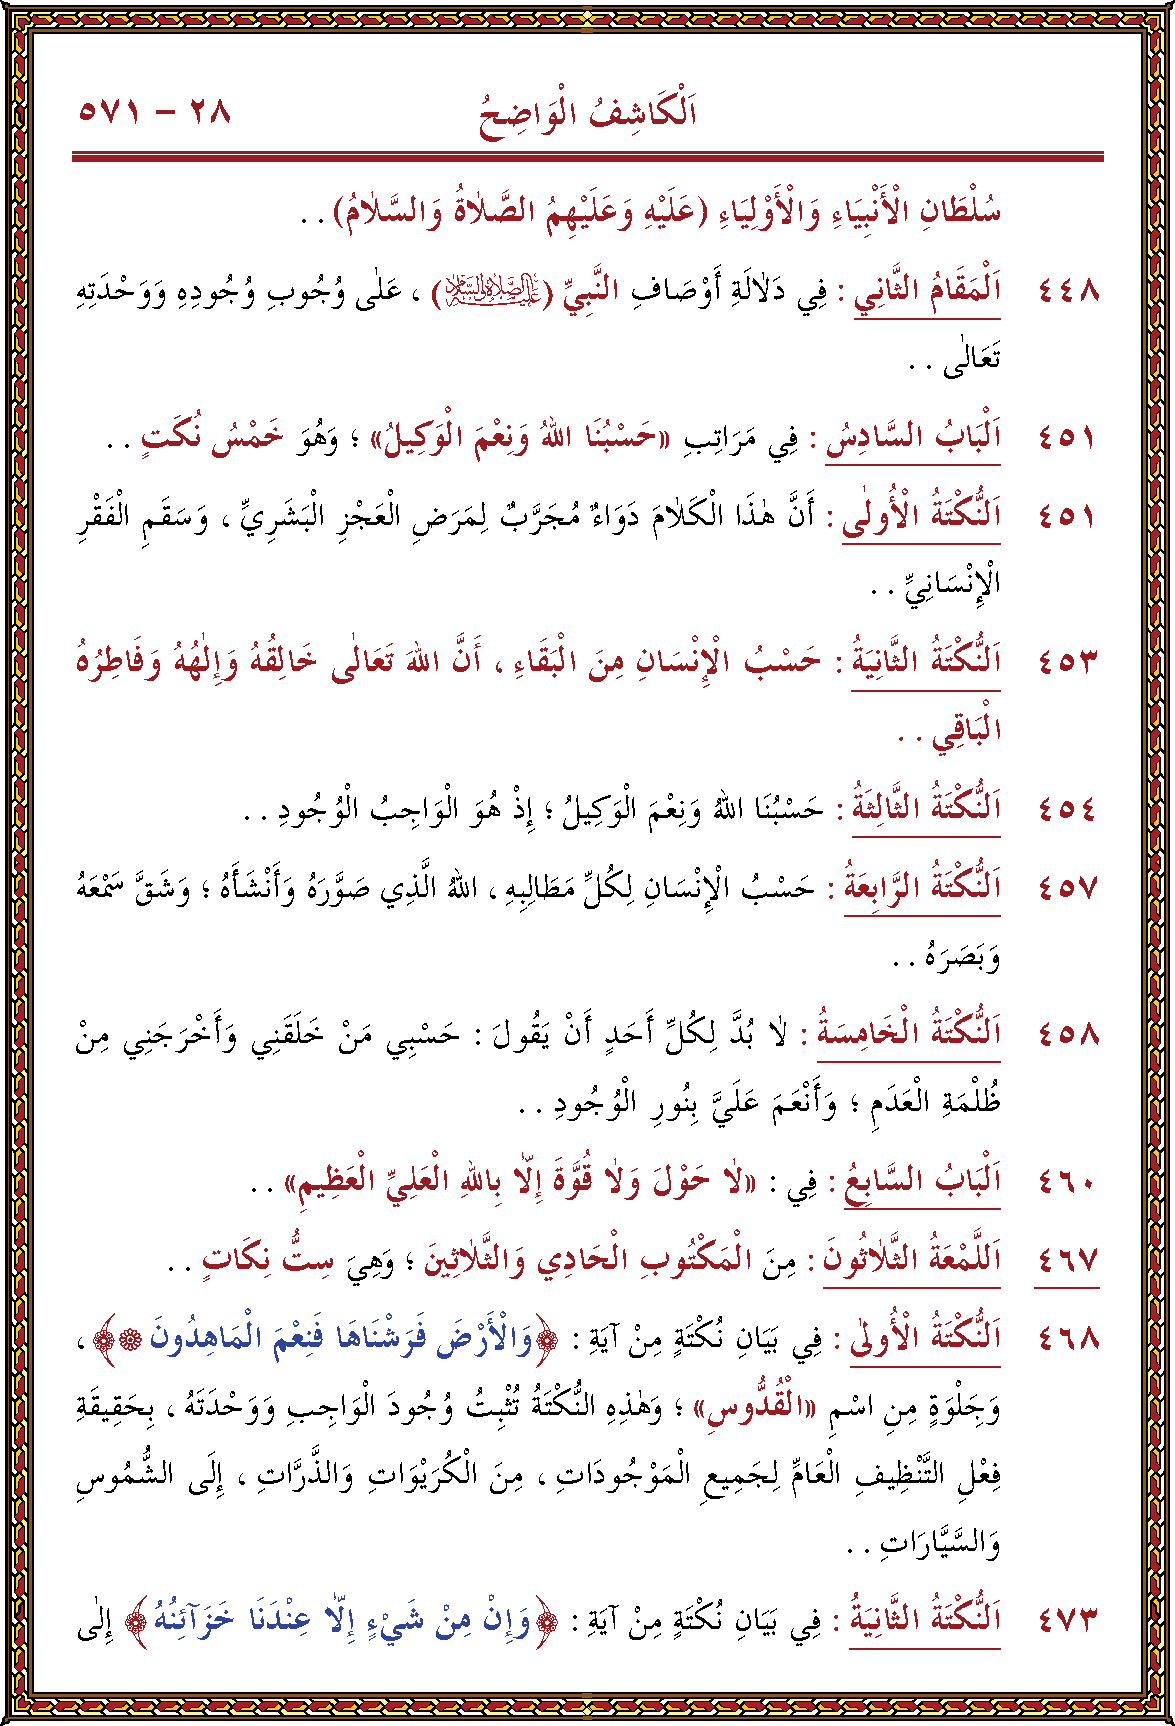 اَلْكَاشِفُ الْوَاضِحُ ٢٨ – ٥٧١
سُلْطَانِ الْأَنْبِيَاءِ وَالْأَوْلِيَاءِ (عَلَيْهِ وَعَلَيْهِمُ الصَّلَاةُ وَالسَّلَامُ) . .
٤٤٨ اَلْمَقَامُ الثَّانِي : فِي دَلَالَةِ أَوْصَافِ النَّبِيِّ (عَلَيْهِ الصَّلَاةُ وَالسَّلَامُ) ، عَلٰى وُجُوبِ وُجُودِهِ وَوَحْدَتِهِ
تَعَالٰى . .
٤٥١ اَلْبَابُ السَّادِسُ : فِي مَرَاتِبِ «حَسْبُنَا اللهُ وَنِعْمَ الْوَكِيلُ» ؛ وَهُوَ خَمْسُ نُكَتٍ . .
٤٥١ اَلنُّكْتَةُ الْأُولٰى : أَنَّ هٰذَا الْكَلَامَ دَوَاءٌ مُجَرَّبٌ لِمَرَضِ الْعَجْزِ الْبَشَرِيِّ ، وَسَقَمِ الْفَقْرِ
الْإِنْسَانِيِّ . .
٤٥٣ اَلنُّكْتَةُ الثَّانِيَةُ : حَسْبُ الْإِنْسَانِ مِنَ الْبَقَاءِ ، أَنَّ اللهَ تَعَالٰى خَالِقُهُ وَإِلٰهُهُ وَفَاطِرُهُ
الْبَاقِي . .
٤٥٤ اَلنُّكْتَةُ الثَّالِثَةُ : حَسْبُنَا اللهُ وَنِعْمَ الْوَكِيلُ ؛ إِذْ هُوَ الْوَاجِبُ الْوُجُودِ . .
٤٥٧ اَلنُّكْتَةُ الرَّابِعَةُ : حَسْبُ الْإِنْسَانِ لِكُلِّ مَطَالِبِهِ ، اللهُ الَّذِي صَوَّرَهُ وَأَنْشَأَهُ ؛ وَشَقَّ سَمْعَهُ
وَبَصَرَهُ . .
٤٥٨ اَلنُّكْتَةُ الْخَامِسَةُ : لَا بُدَّ لِكُلِّ أَحَدٍ أَنْ يَقُولَ : حَسْبِي مَنْ خَلَقَنِي وَأَخْرَجَنِي مِنْ
ظُلْمَةِ الْعَدَمِ ؛ وَأَنْعَمَ عَلَيَّ بِنُورِ الْوُجُودِ . .
٤٦٠ اَلْبَابُ السَّابِعُ : فِي : «لَا حَوْلَ وَلَا قُوَّةَ إِلَّا بِاللهِ الْعَلِيِّ الْعَظِيمِ» . .
٤٦٧ اَللَّمْعَةُ الثَّلَاثُونَ : مِنَ الْمَكْتُوبِ الْحَادِي وَالثَّلَاثِينَ ؛ وَهِيَ سِتُّ نِكَاتٍ . .
٤٦٨ اَلنُّكْتَةُ الْأُولٰى : فِي بَيَانِ نُكْتَةٍ مِنْ آيَةِ : ﴿وَالْأَرْضَ فَرَشْنَاهَا فَنِعْمَ الْمَاهِدُونَ ۝﴾ ،
وَجِلْوَةٍ مِنِ اسْمِ «الْقُدُّوسِ» ؛ وَهٰذِهِ النُّكْتَةُ تُثْبِتُ وُجُودَ الْوَاجِبِ وَوَحْدَتَهُ ، بِحَقِيقَةِ
فِعْلِ التَّنْظِيفِ الْعَامِّ لِجَمِيعِ الْمَوْجُودَاتِ ، مِنَ الْكُرَيْوَاتِ وَالذَّرَّاتِ ، إِلَى الشُّمُوسِ
وَالسَّيَّارَاتِ . .
٤٧٣ اَلنُّكْتَةُ الثَّانِيَةُ : فِي بَيَانِ نُكْتَةٍ مِنْ آيَةِ : ﴿وَإِنْ مِنْ شَيْءٍ إِلَّا عِنْدَنَا خَزَآئِنُهُ﴾ إِلٰى